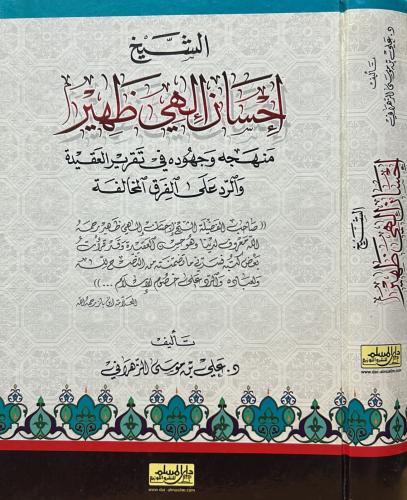 الشيخ
إحسان إلهي ظهير
منهجه وجهوده في تقرير العقيدة
والرد على الفرق المخالفة
((صاحب الفضيلة الشيخ إحسان إلهي ظهير رحمه
الله معروف لدينا وهو حسن العقيدة وقد قرأت
بعض كتبه فسرني ما تضمنته من النصح لله
ولعباده والرد على خصوم الإسلام ...))
العلامة ابن باز رحمه الله
تأليف
د. علي بن موسى الزهراني
دار المسلم
للنشر والتوزيع
www.dar-almuslim.com
د. علي بن موسى الزهراني
تأليف
إحسان إلهي ظهير
الشيخ
دار المسلم
للنشر والتوزيع
www.dar-almuslim.com